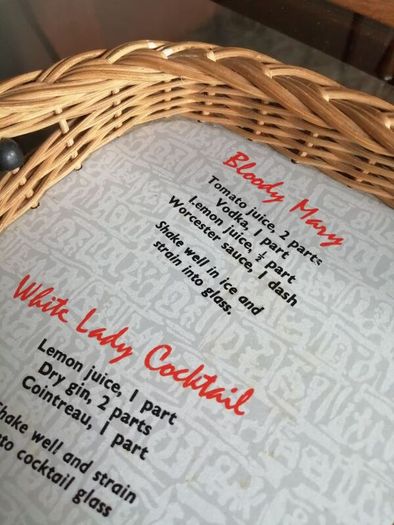 Bloody Mary
Tomato juice, 2 parts
Vodka, 1 part
Lemon juice, ½ part
Worcester sauce, 1 dash
Shake well in ice and
strain into glass.
White Lady Cocktail
Lemon juice, 1 part
Dry gin, 2 parts
Cointreau, 1 part
Shake well and strain
into cocktail glass